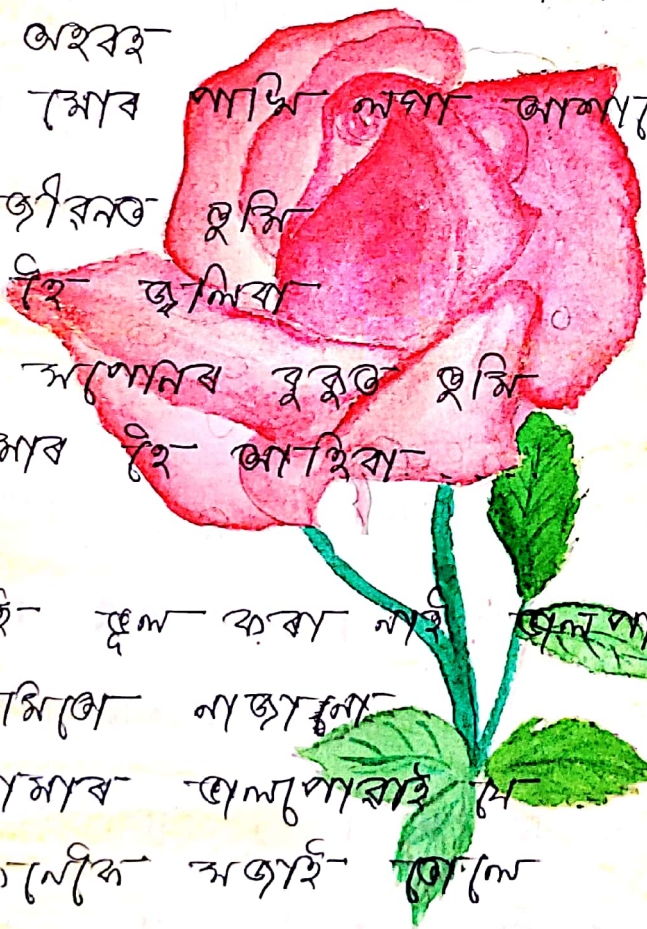 অহৰহ
মোৰ পাখি লগা আশাবে
জীৱনত তুমি
হৈ জ্বলিবা
সপোনৰ বুকুত তুমি
মোৰ হৈ আহিবা
ভুল কৰা নাই ভালপা
নাজানো
ভালপোৱাই যে
সজাই তোলে